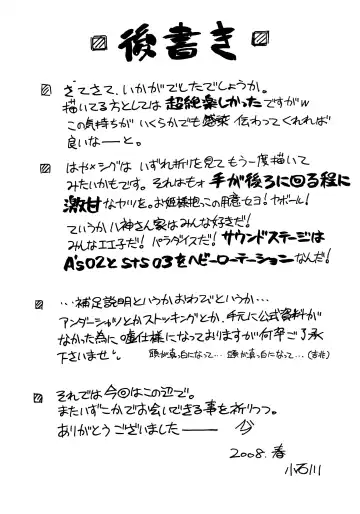 後書き
さてさて、いかがでしたでしょうか。
描いてる方としては超絶楽しかったですがw
この気持ちがいくらかでも感染 伝わってくれれば
良いなーと。
はやxシグは いずれ折りを見て もう一度描いて
みたいかもです。それはもォ 手が後ろに回る程に
激甘なヤツを。お姫様抱っこの用意セヨ!ヤボール!
ていうか八神さん家はみんな好きだ!
みんなエエ子だ!パラダイスだ!サウンドステージは
A'S02とStS 03をヘビーローテーションなんだ!
…補足説明というかおわびというか…
アンダーシャツとかストッキングとか、手元に公式資料が
なかった為に嘘仕様になっておりますが何卒ご了承
下さいませ。 頭が真っ白になって… 頭が真っ白になって…(吉井)
それでは今回はこの辺で。
またいずこかでお会いできる事を祈りつつ。
ありがとうございました――
2008.春
小石川